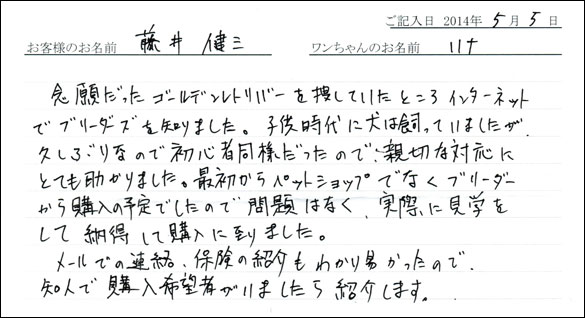 ご記入日 2014年 5月 5日
お客様のお名前 藤井 健三 ワンちゃんのお名前 ハナ
念願だったゴールデンレトリバーを捜していたところインターネット
でブリーダーズを知りました。子供時代に犬は飼っていましたが
久しぶりなので初心者同様だったので、親切な対応に
とても助かりました。最初からペットショップでなくブリーダー
から購入の予定でしたので問題はなく、実際に見学を
して納得して購入に至りました。
メールでの連絡、保険の紹介もわかり易かったので、
知人で購入希望者がいましたら紹介します。